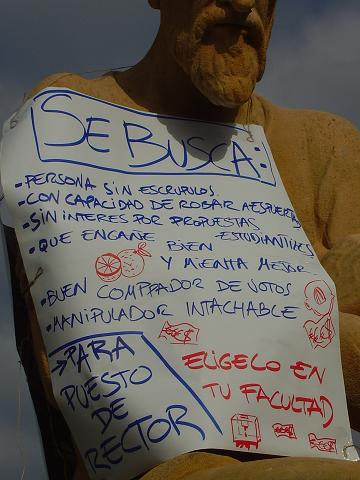 SE BUSCA:
-PERSONA SIN ESCRUPULOS.
-CON CAPACIDAD DE ROBAR A ESPUERTAS
-SIN INTERES POR PROPUESTAS ESTUDIANTILES
-QUE ENGAÑE BIEN
Y MIENTA MEJOR
-BUEN COMPRADOR DE VOTOS
-MANIPULADOR INTACHABLE
→PARA
PUESTO
DE
RECTOR
ELIGELO EN
TU FACULTAD